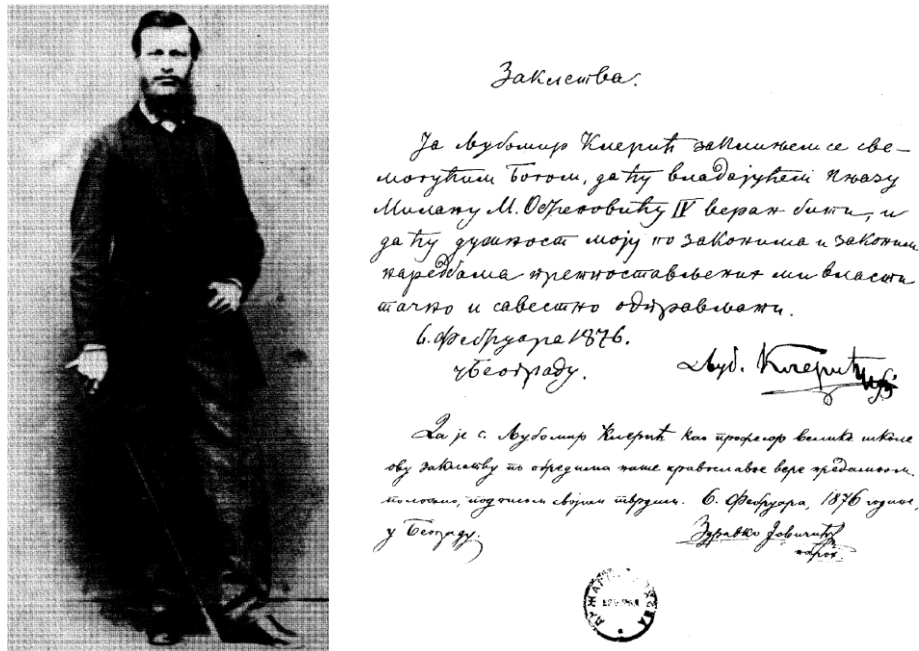 Заклетва.
Ја Љубомир Клерић заклињем се све-
могућим Богом, да ћу владајућем Књазу
Милану М. Обреновићу IV веран бити, и
да ћу дужност моју по законима и законим
наредбама предпостављених ми власти
тачно и савестно одправљати.
6. Фебруара 1876.
у Београду.
Љуб. Клерић
Да је г. Љубомир Клерић као професор велике школе
ову заклетву по обредима наше православне вере предамном
положио, подписом својим тврдим. 6. Фебруара, 1876 године,
у Београду.
Здравко
парох